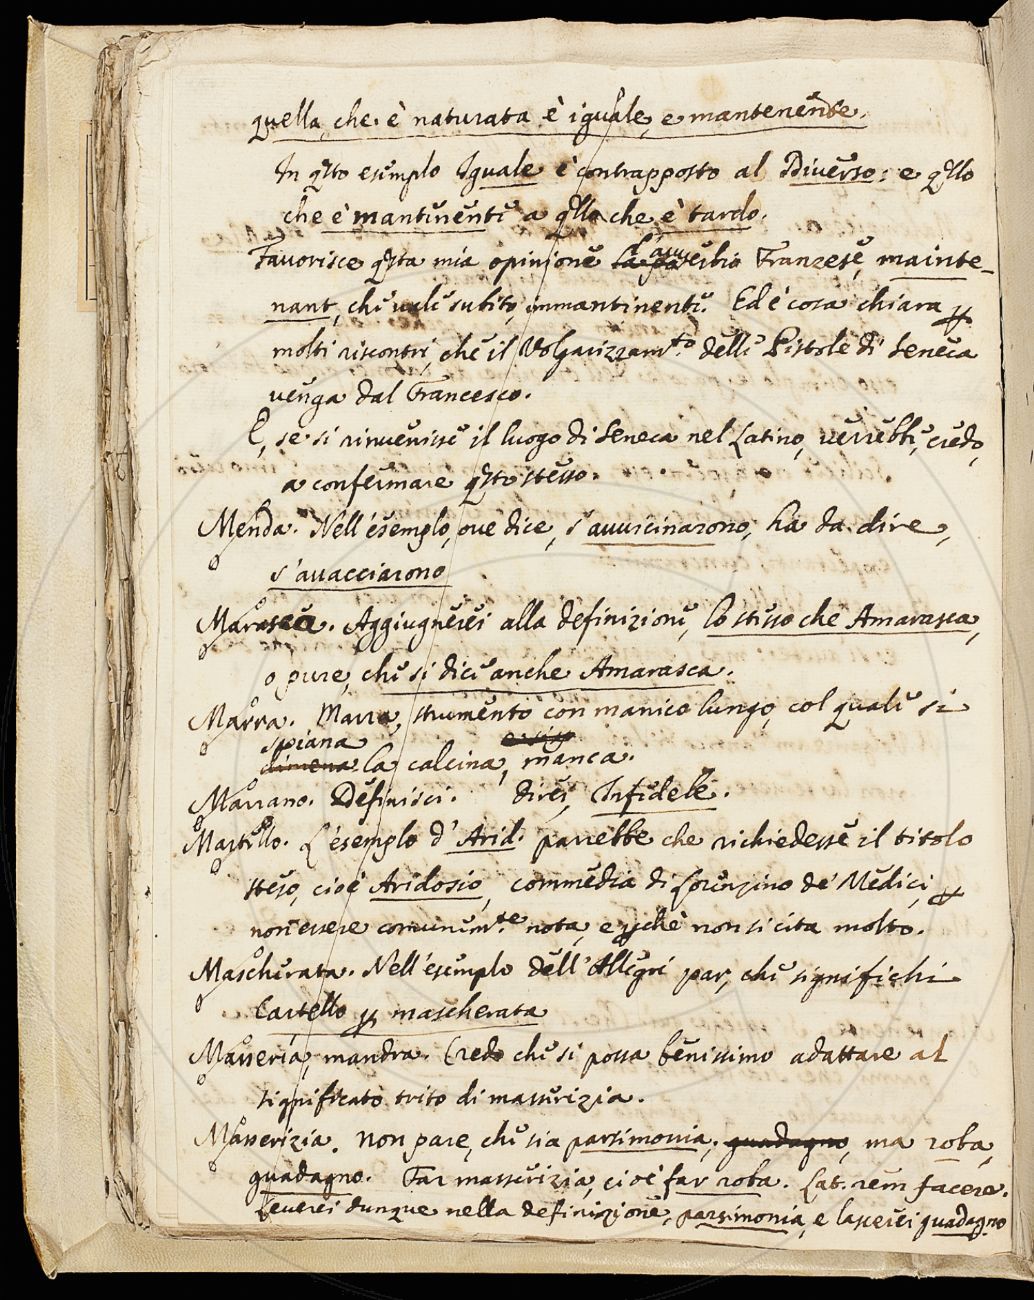 quella, che è naturata è iguale, e mantenente.
In qsto esemplo Iguale è contrapposto al Diverso: e qllo
che è mantenente a qllo che è tardo.
Favorisce qsta mia opinione l'avverbio Franzese, mainte-
nant, che vale subito, inmantinente. Ed è cosa chiara p
molti riscontri, che il Volgarizzamto. delle Pistole di Seneca
venga dal Francesco.
E, se si rinvenisse il luogo di Seneca nel Latino, verrebbe, credo,
a confermare qsto stesso.
Menda. Nell'esemplo, ove dice, s'avvicinarono, ha da dire,
s'avacciarono
Marasca. Aggiugnerei alla definizione, lo stesso che Amarasca,
o pure, che si dice anche Amarasca.
Marra. Marra, strumento con manico lungo, col quale si
spiana
dimena la calcina, manca.
Marrano. Definisci. direi, Infidele.
Martello. L'esemplo d'Arid. parrebbe che richiedesse il titolo
steso, cioè Aridosio, commedia di Lorenzino de' Medici, p
non essere comunemte. nota, e pchè non si cita molto.
Mascherata. Nell'esemplo dell'Allegri par, che significhi
Cartello p mascherata
Masseria, mandra. Credo che si possa benissimo adattare al
significato trito di masserizia.
Masserizia. Non pare, che sia parsimonia, guadagno, ma roba,
guadagno. Far masserizia, cioè far roba. Lat. rem facere.
Leverei dunque nella definizione, parsimonia, e lascerei guadagno